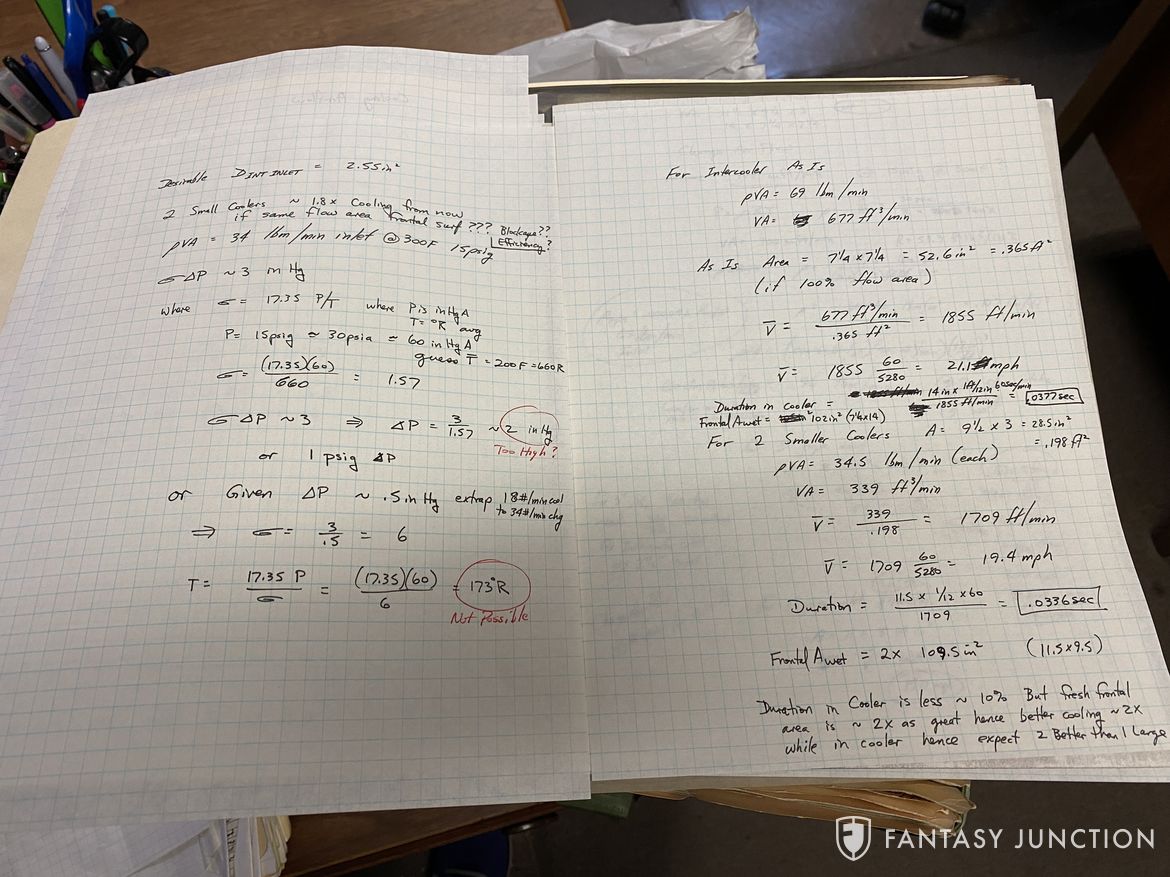 Desirable D INT INLET = 2.55 in²
2 Small Coolers ~ 1.8x Cooling from now
if same flow area frontal surf ??? Blockage??
Efficiency?
ρVA = 34 lbm/min inlet @ 300F 15psig
σΔP ~ 3 in Hg
where σ = 17.35 P/T where P is in Hg A
T = °R avg
P = 15psig ≈ 30psia ≈ 60 in Hg A
guess T̅ = 200F = 660R
σ = (17.35)(60) / 660 = 1.57
σΔP ~ 3 ⇒ ΔP = 3/1.57 ~ 2 in Hg
Too High?
or 1 psig ΔP
or Given ΔP ~ .5 in Hg extrap 18#/min cool
to 34#/min chg
⇒ σ = 3/.5 = 6
T = 17.35 P / σ = (17.35)(60) / 6 = 173°R
Not Possible
For Intercooler As Is
ρVA = 69 lbm/min
VA = 677 ft³/min
As Is Area = 7¼ x 7¼ = 52.6 in² = .365 ft²
(if 100% flow area)
V̅ = 677 ft³/min / .365 ft² = 1855 ft/min
V̅ = 1855 60/5280 = 21.1 mph
Duration in cooler = 14 in x 1ft/12in 60sec/min / 1855 ft/min = .0377 sec
Frontal Awet = 102 in² (7¼x14)
For 2 Smaller Coolers A = 9½ x 3 = 28.5 in²
= .198 ft²
ρVA = 34.5 lbm/min (each)
VA = 339 ft³/min
V̅ = 339/.198 = 1709 ft/min
V̅ = 1709 60/5280 = 19.4 mph
Duration = 11.5 x 1/12 x 60 / 1709 = .0336 sec
Frontal Awet = 2x 109.5 in² (11.5x9.5)
Duration in Cooler is less ~ 10% But fresh frontal
area is ~ 2x as great hence better cooling ~ 2x
while in cooler hence expect 2 Better than 1 Large
FANTASY JUNCTION